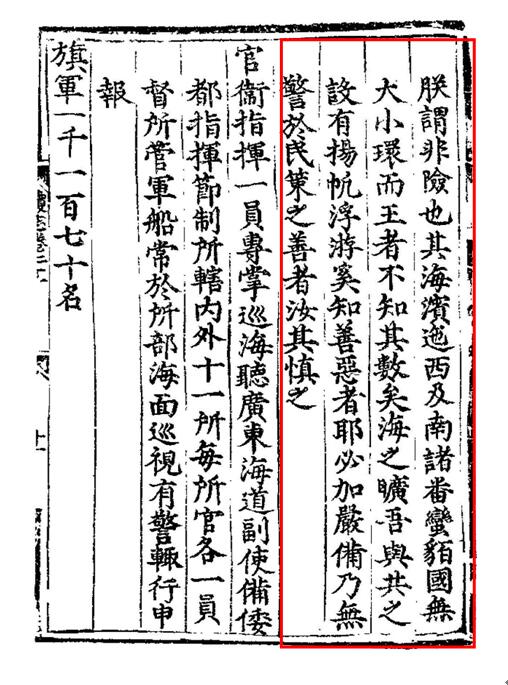 朕謂非險也其海濱迤西及南諸番蠻貊國無
大小環而王者不知其數矣海之曠吾與共之
設有揚帆浮游奚知善惡者耶必加嚴備乃無
警於民策之善者汝其慎之
官衛指揮一員專掌巡海聽廣東海道副使備倭
都指揮節制所轄内外十一所每所官各一員
督所管軍船常於所部海面巡視有警輒行申
報
旗軍一千一百七十名